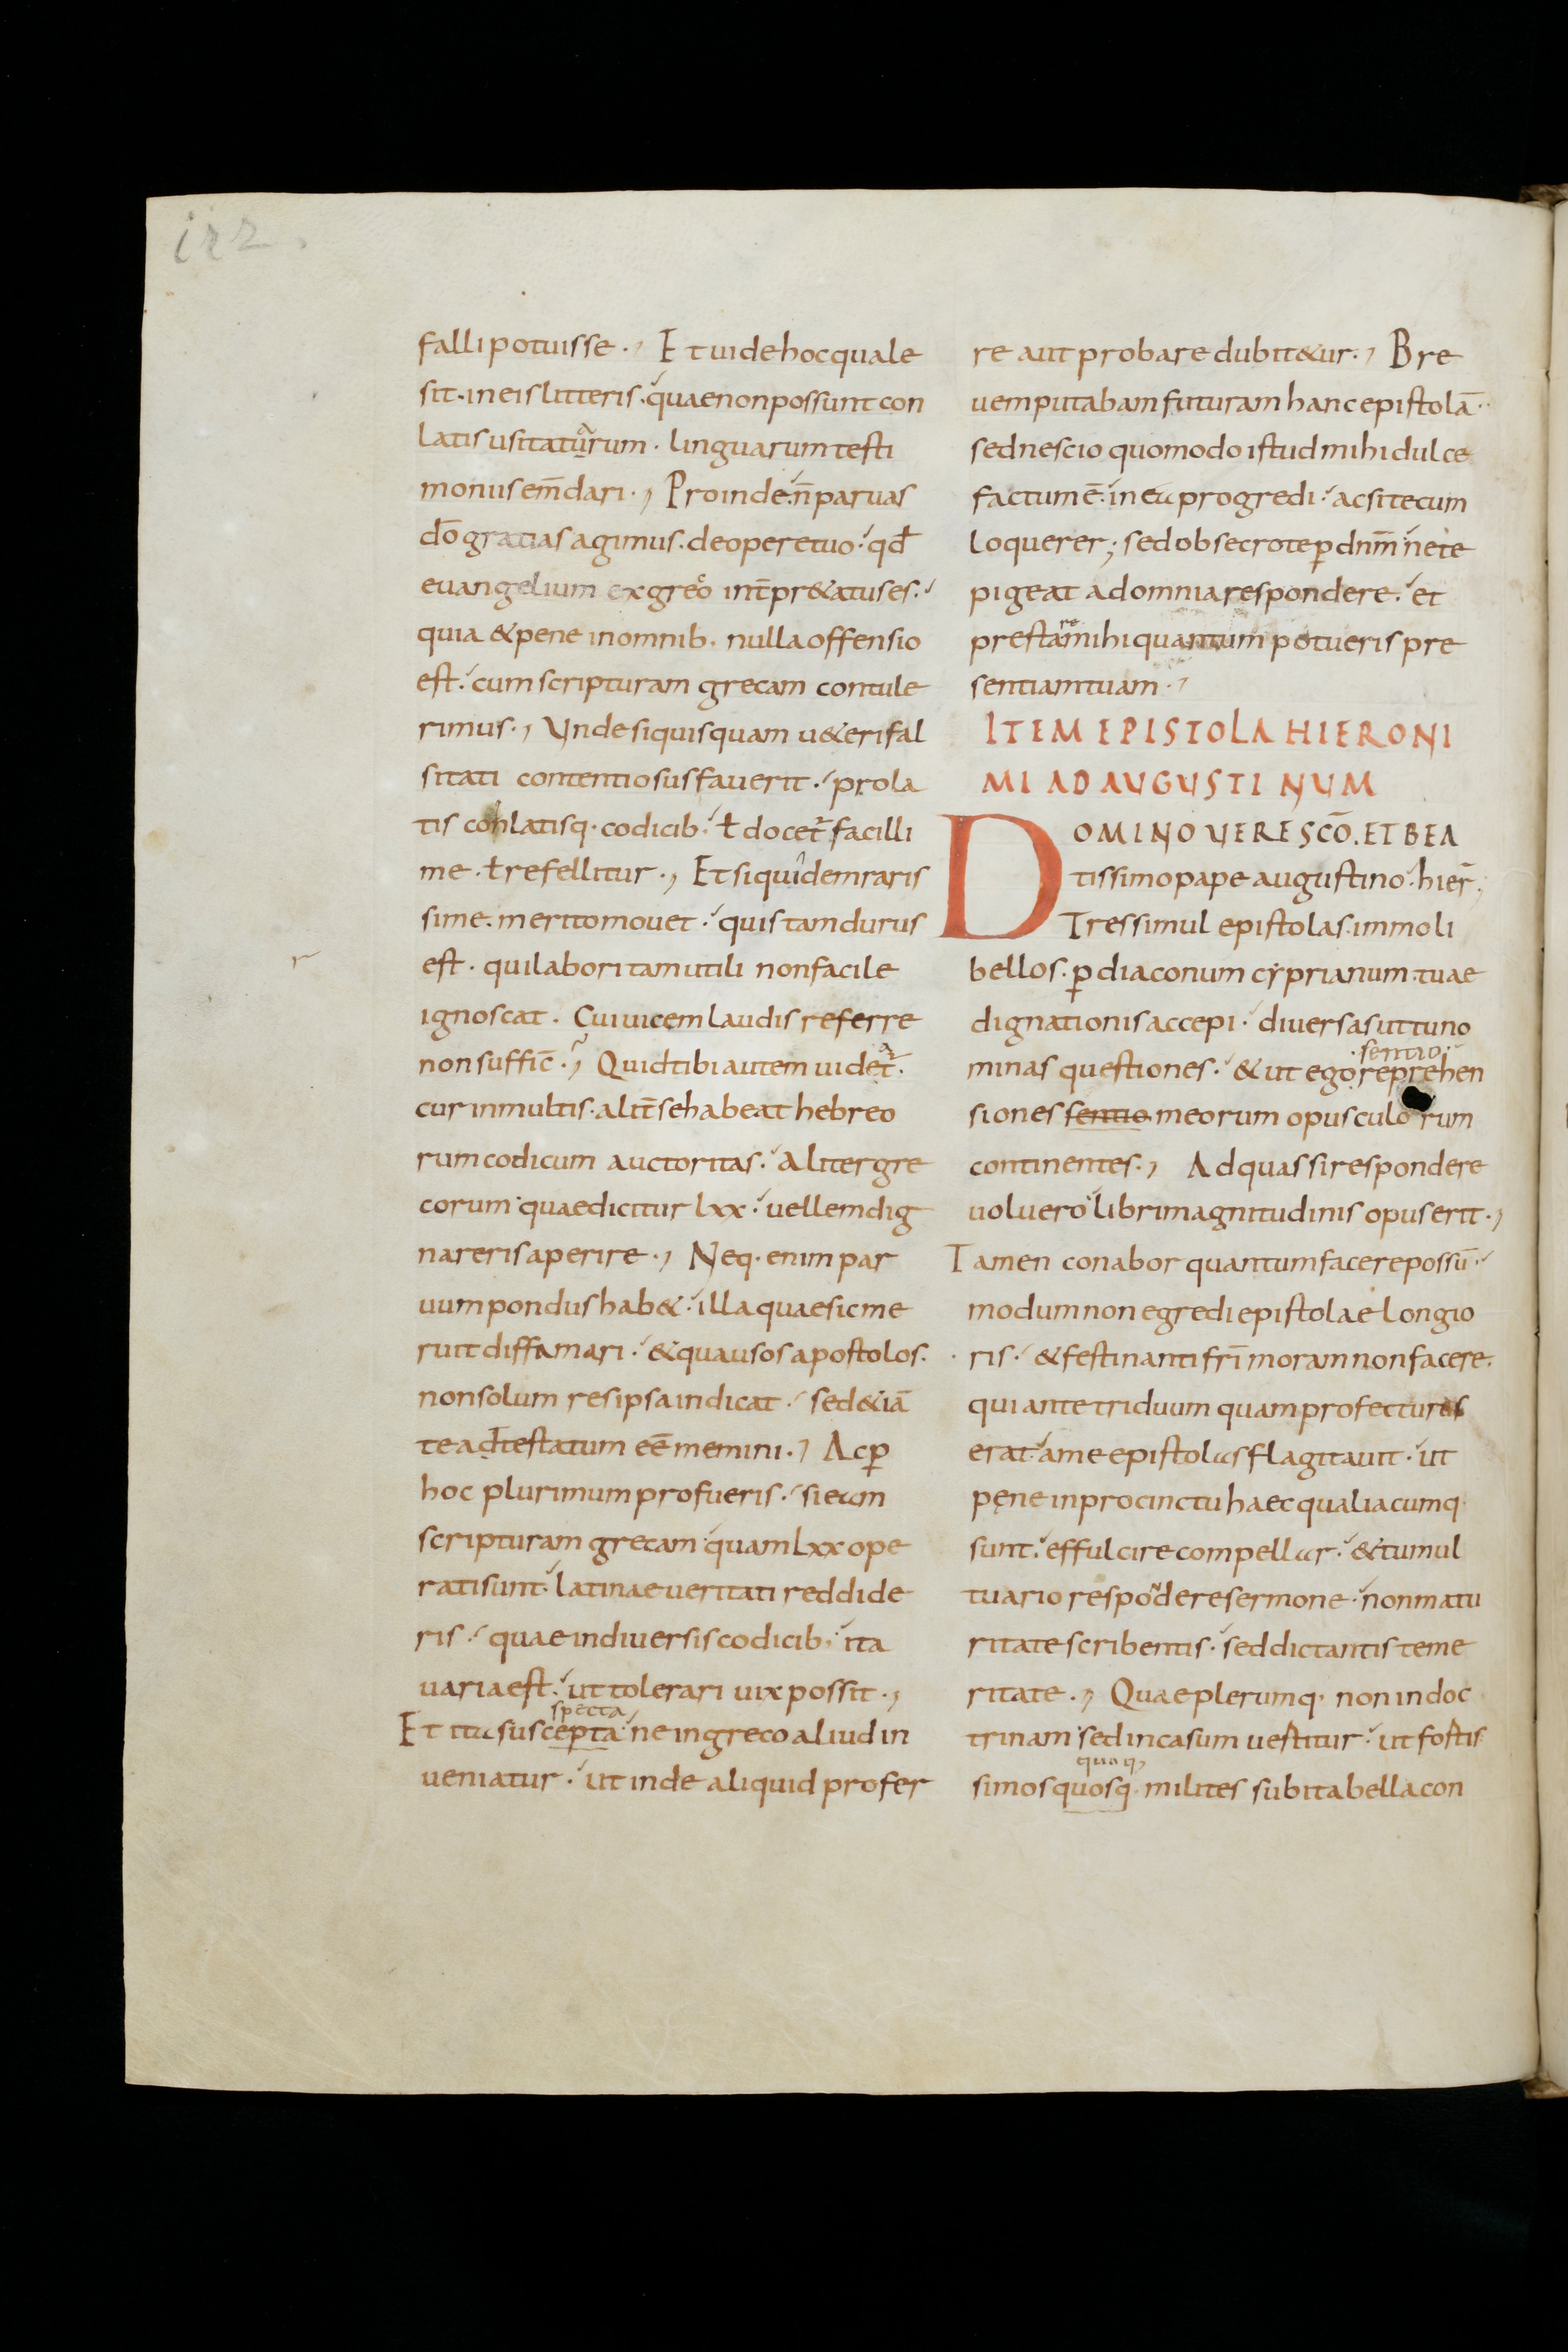 122.
falli potuisse. Et uide hoc quale
sit. in eis litteris. quae non possunt con
latis usitatuarum. linguarum testi
moniis em̄dari. Proinde. n̄ paruas
dō gratias agimus. de opere tuo. qđ
euangelium ex greco int̄pr&atus es.
quia & pene in omnib. nulla offensio
est. cum scripturam grecam contule
rimus. Unde si quisquam u&eri fal
sitati contentiosus fauerit. prola
tis conlatisq. codicib. ł docet᷑ facilli
me. ł refellitur. Et si quidem raris
sime. merito mouet. quis tam durus
est. qui labori tam utili non facile
ignoscat. Cui uicem laudis referre
non suffic̄. Quid tibi autem uidet᷑.
cur in multis. alit̄ se habeat hebreo
rum codicum auctoritas. aliter gre
corum quae dicitur lxx. uellem dig
nareris aperire. Neq. enim par
uum pondus hab&. illa quae sic me
ruit diffamari. & qua usos apostolos.
non solum res ipsa indicat. sed & iā
te adtestatum eē memini. Ac ꝑ
hoc plurimum profueris. si eam
scripturam grecam quam lxx ope
rati sunt. latinae ueritati reddide
ris. quae in diuersis codicib. ita
uaria est. ut tolerari uix possit.
specta
Et ita suscepta. ne in greco aliud in
ueniatur. ut inde aliquid profer
re aut probare dubit&ur. Bre
uem putabam futuram hanc epistolā.
sed nescio quomodo istud mihi dulce
factum ē. in ea progredi. ac si tecum
loquerer; sed obsecro te ꝑ dnm̄ ne te
pigeat ad omnia respondere. et
prestare mihi quantum potueris pre
sentiam tuam.
ITEM EPISTOLA HIERONI
MI AD AUGUSTINUM
DOMINO UERE SCŌ. ET BEA
tissimo pape augustino. hier̄;
Tres simul epistolas. immo li
bellos. ꝑ diaconum cyprianum. tuae
dignationis accepi. diuersas ut tu no
sentio.
minas questiones. & ut ego reprehen
siones sentio meorum opusculorum
continentes. Ad quas si respondere
uoluero libri magnitudinis opus erit.
Tamen conabor quantum facere possū.
modum non egredi epistolae longio
ris. & festinanti fr̄i moram non facere.
qui ante triduum quam profecturus
erat. a me epistolas flagitauit. ut
pene in procinctu haec qualiacumq.
sunt. effulcire compellar. & tumul
tuario respondere sermone. non matu
ritate scribentis. sed dictantis teme
ritate. Quae plerumq. non in doc
trinam sed in casum uestitur. ut fostis
quoq,
simos quosq. milites subita bella con